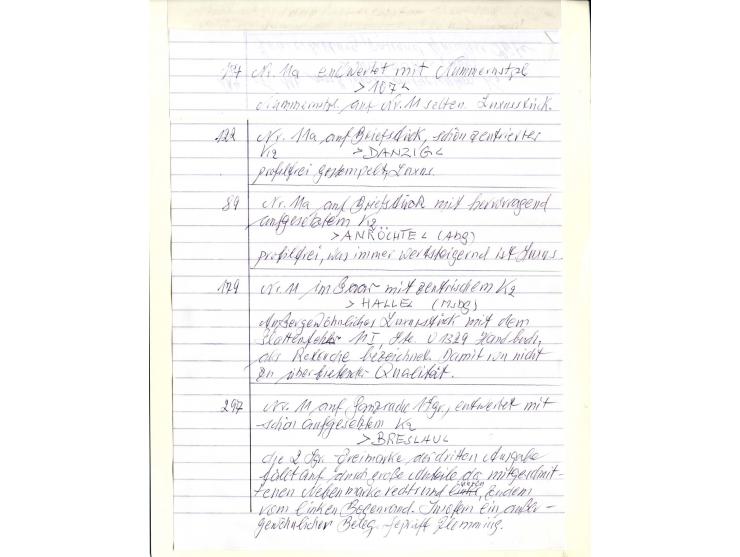 Nr. 11a entwertet mit Nummernstpl
>107<
Nummernstpl. auf Nr. 11 selten Luxusstück.
122 Nr. 11a, auf Briefstück, schön zentrierter
K2 >DANZIG<
profilfrei gestempelt, Luxus.
89 Nr. 11a auf Briefstück mit hervorragend
aufgesetztem K2
>ANRÖCHTE< (Abg)
profilfrei, was immer wertsteigernd ist. Luxus.
179 Nr. 11 im Paar mit zentrischem K2
>HALLE< (Msbg)
Außergewöhnliches Luxusstück mit dem
Plattenfehler MI, Handbuch,
als bezeichnet. Damit von nicht
zu überbietender Qualität.
297 Nr. 11 auf entwertet mit
schön aufgesetztem K2
>BRESLAU<
die 2 Sgr. Freimarke der dritten Ausgabe
fällt auf durch große Anteile der mitgeschnit-
tenen Nebenmarke rechts und unten, zudem
vom linken Bogenrand. Insofern ein außer-
gewöhnlicher Beleg. geprüft Flemming.